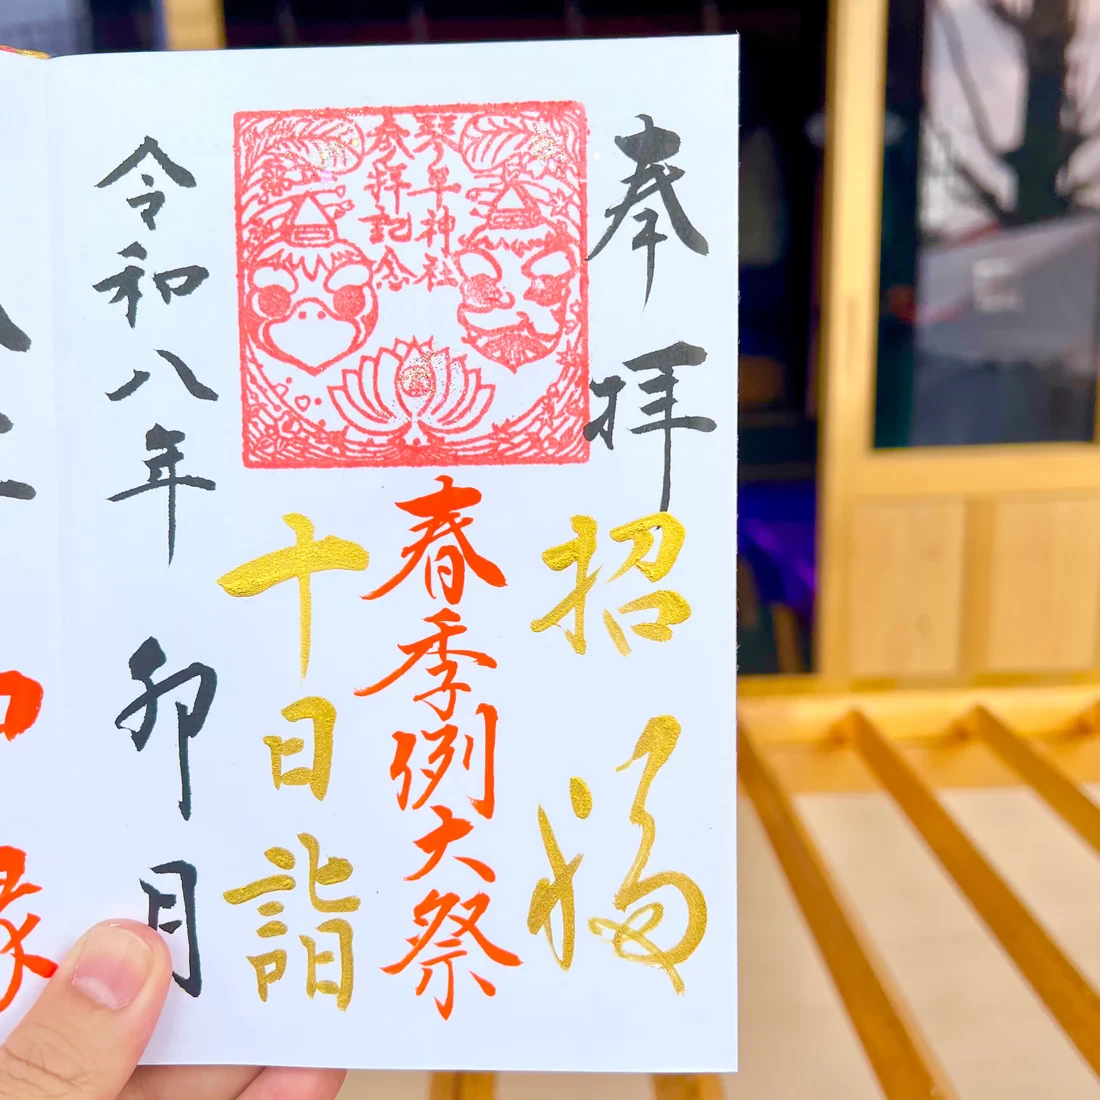 奉拝
招福
琴平神社
参拝記念
春季例大祭
十日詣
令和八年
卯月